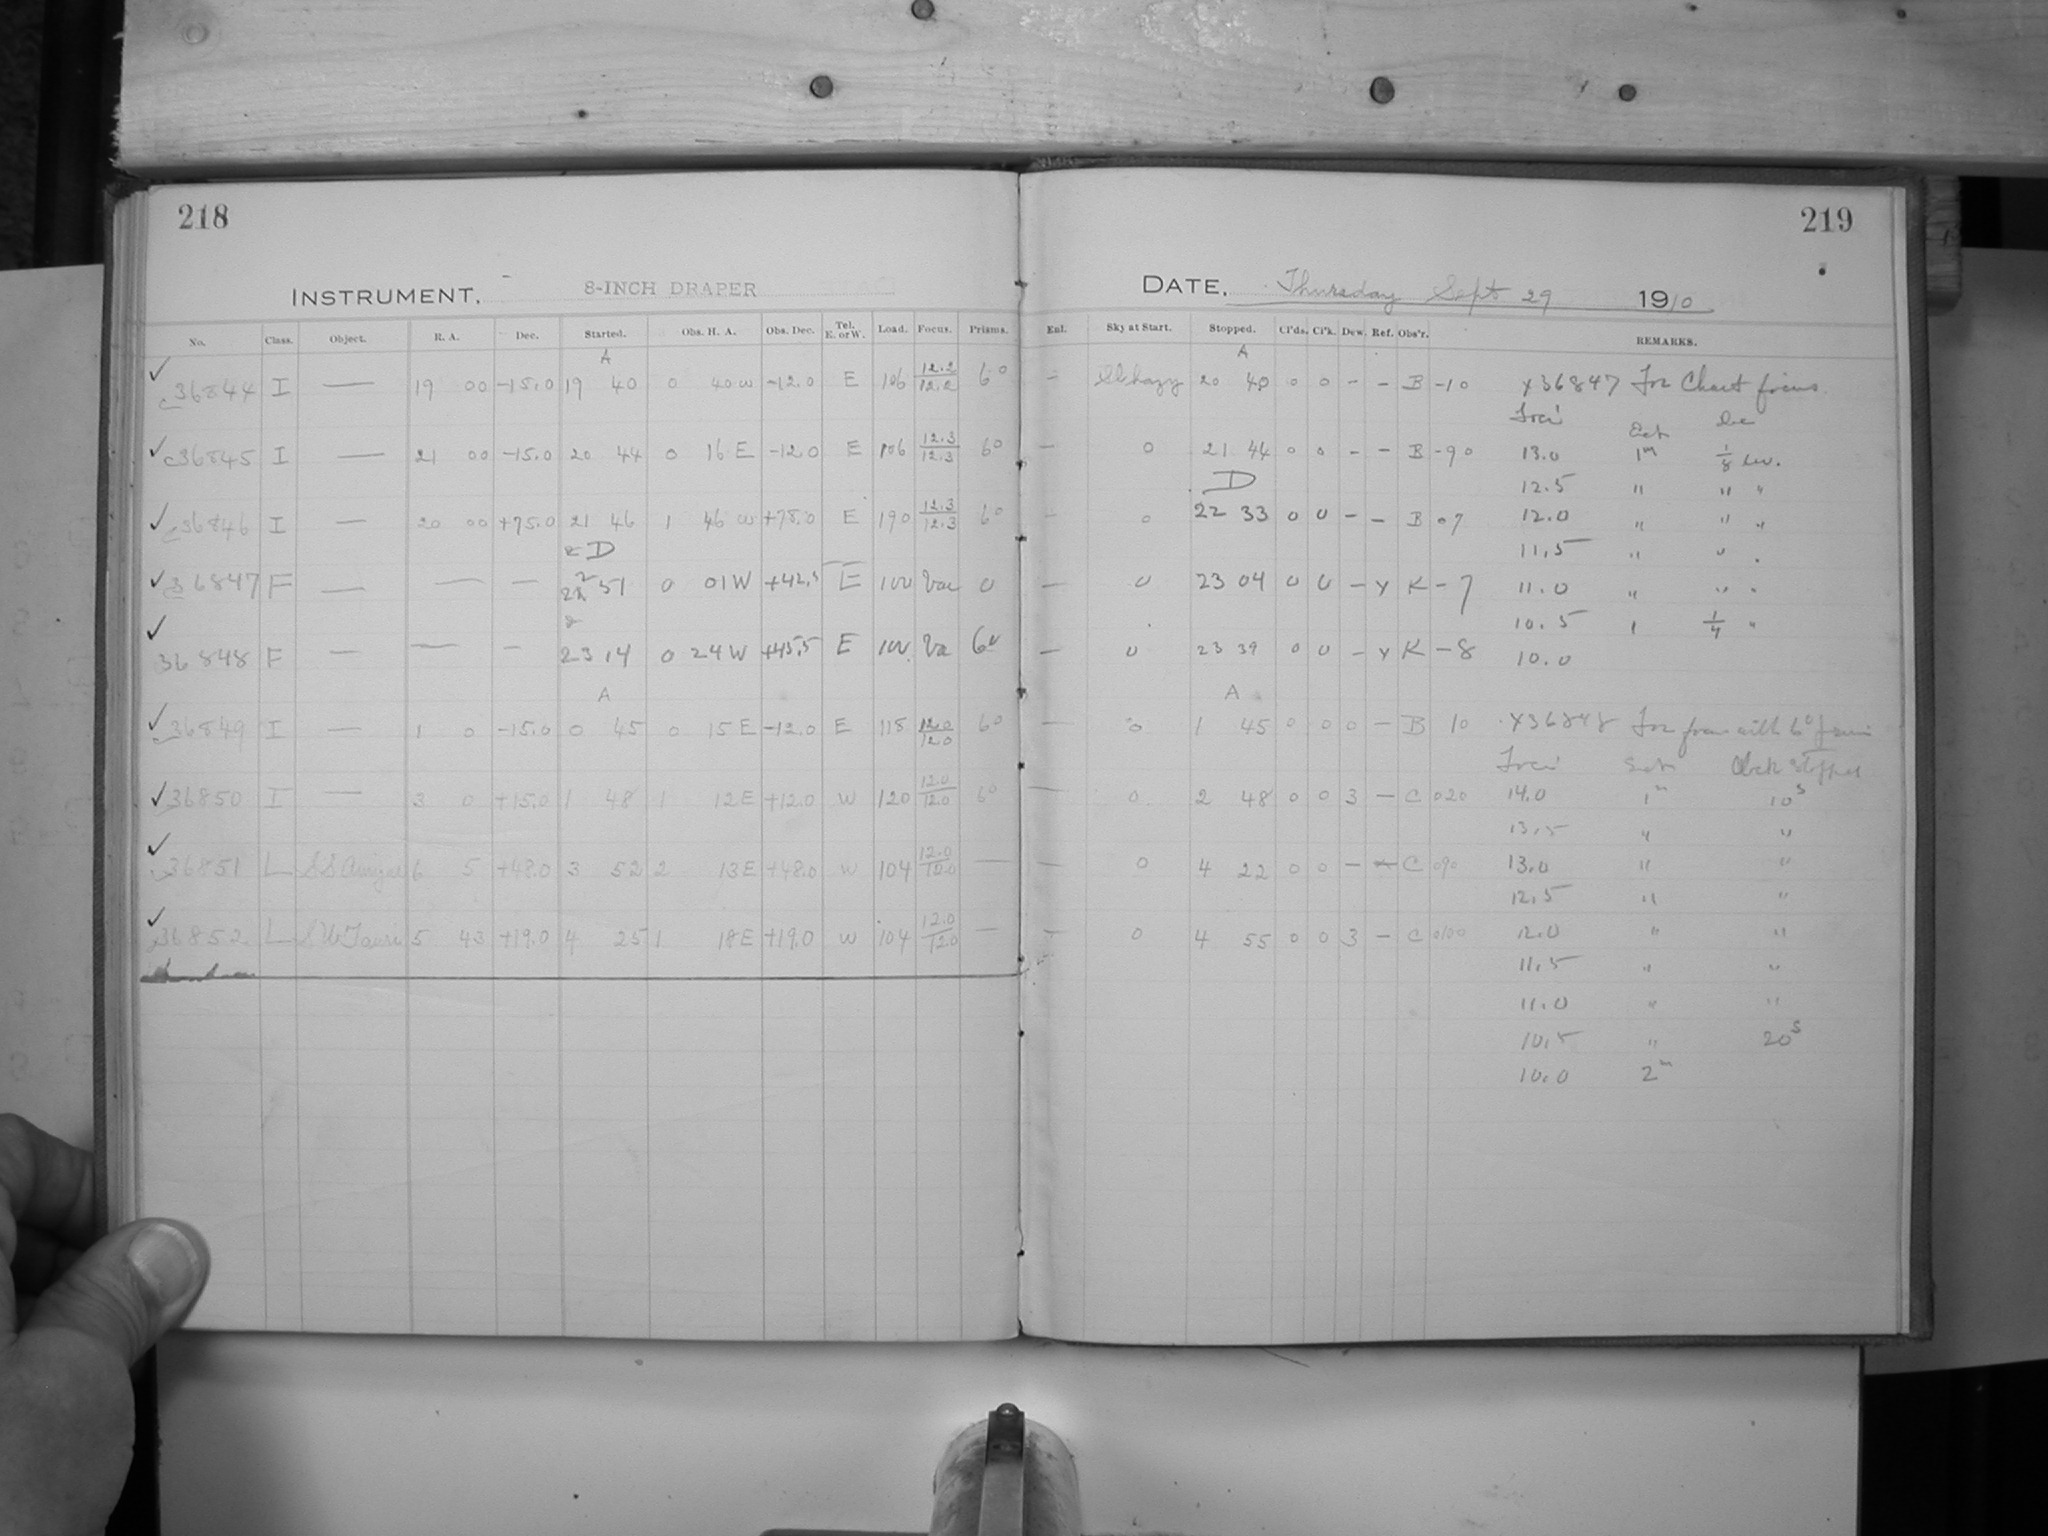 218
INSTRUMENT, 8-INCH DRAPER
No. Class. Object. R. A. Dec. Started. Obs. H. A. Obs. Dec. Tel. E. or W. Load. Focus. Prisms.
A
✓ c36844 I — 19 00 -15.0 19 40 0 40 W -12.0 E 106 12.2/12.2 6°
✓ c36845 I — 21 00 -15.0 20 44 0 16 E -12.0 E 106 12.3/12.3 6°
✓ c36846 I — 20 00 +75.0 21 46 1 46 W +78.0 E 190 12.3/12.3 6°
D
✓ 36847 F — — — 22 51 0 01 W E 100 Var 0
✓ 36848 F — — — 23 14 0 24 W +45.5 E 100 Va 60
A
✓ 36849 I — 1 0 -15.0 0 45 0 15 E -12.0 E 118 12.0/12.0 6°
✓ 36850 I — 3 0 +15.0 1 48 1 12 E +12.0 W 120 12.0/12.0 6°
✓ 36851 L SS Aurigae 6 5 +48.0 3 52 2 13 E +48.0 W 104 12.0/10.0 —
✓ 36852 L SU Tauri 5 43 +19.0 4 25 1 18 E +19.0 W 104 12.0/12.0 —
219
DATE, Thursday Sept 29 1910
Enl. Sky at Start. Stopped. Cl'ds. Cl'k. Dew. Ref. Obs'r. REMARKS.
A
— Sl hazy 20 40 0 0 - - B -10 X36847 For Chart focus.
Foci
— 0 21 44 0 0 - - B -90 13.0 1m 1/8 rev.
D 12.5 " " "
— 0 22 33 0 0 - - B 07 12.0 " " "
11.5 " "
— 0 23 04 0 0 - Y K -7 11.0 " " "
10.5 1 1/4 "
— 0 23 39 0 0 - Y K -8 10.0
A
— 0 1 45 0 0 0 - B 10 X36848 For focus with 6° prism
Foci Clock stopped
— 0 2 48 0 0 3 - C 020 14.0 1m 10s
13.5 " "
— 0 4 22 0 0 - C 090 13.0 " "
12.5 " "
— 0 4 55 0 0 3 - C 0100 12.0 " "
11.5 " "
11.0 " "
10.5 " 20s
10.0 2m